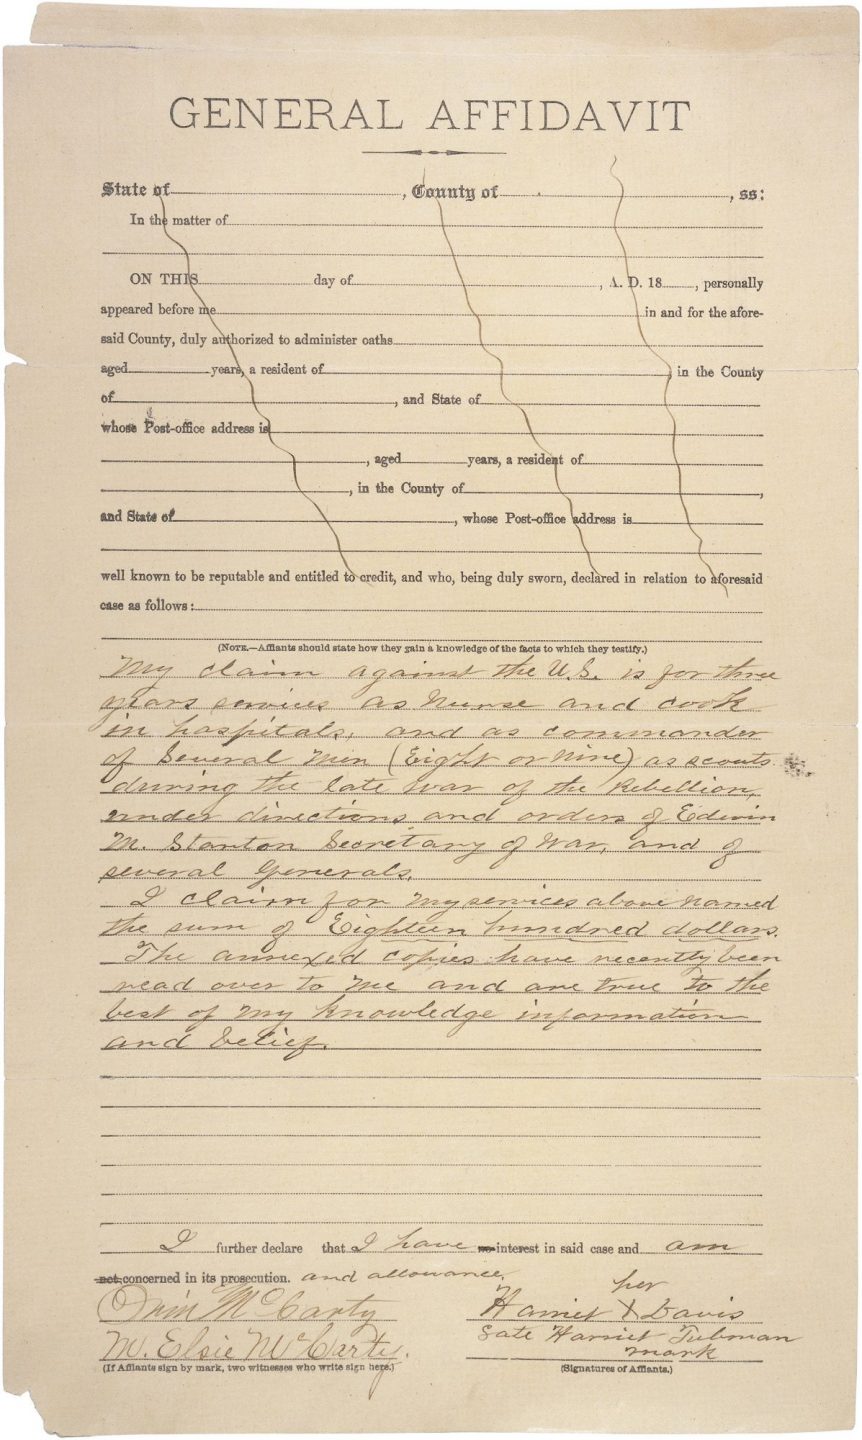 GENERAL AFFIDAVIT
State of , County of , ss:
In the matter of
ON THIS day of , A. D. 18 , personally
appeared before me in and for the afore-
said County, duly authorized to administer oaths
aged years, a resident of , in the County
of , and State of
whose Post-office address is
, aged years, a resident of
, in the County of ,
and State of , whose Post-office address is
well known to be reputable and entitled to credit, and who, being duly sworn, declared in relation to aforesaid
case as follows:
(NOTE.—Affiants should state how they gain a knowledge of the facts to which they testify.)
My claim against the U.S. is for three
years services as nurse and cook
in hospitals, and as commander
of Several men (Eight or Nine) as scouts
during the late war of the Rebellion,
under directions and orders of Edwin
M. Stanton Secretary of War, and of
several Generals.
I claim for my services above named
the sum of Eighteen hundred dollars.
The annexed copies have recently been
read over to me and are true to the
best of my knowledge information
and belief.
I further declare that I have no interest in said case and am
not concerned in its prosecution. and allowance.
Orin McCarty
M. Elsie McCarty.
(If Affiants sign by mark, two witnesses who write sign here.)
her
Harriet X Davis
Late Harriet Tubman
mark
(Signatures of Affiants.)